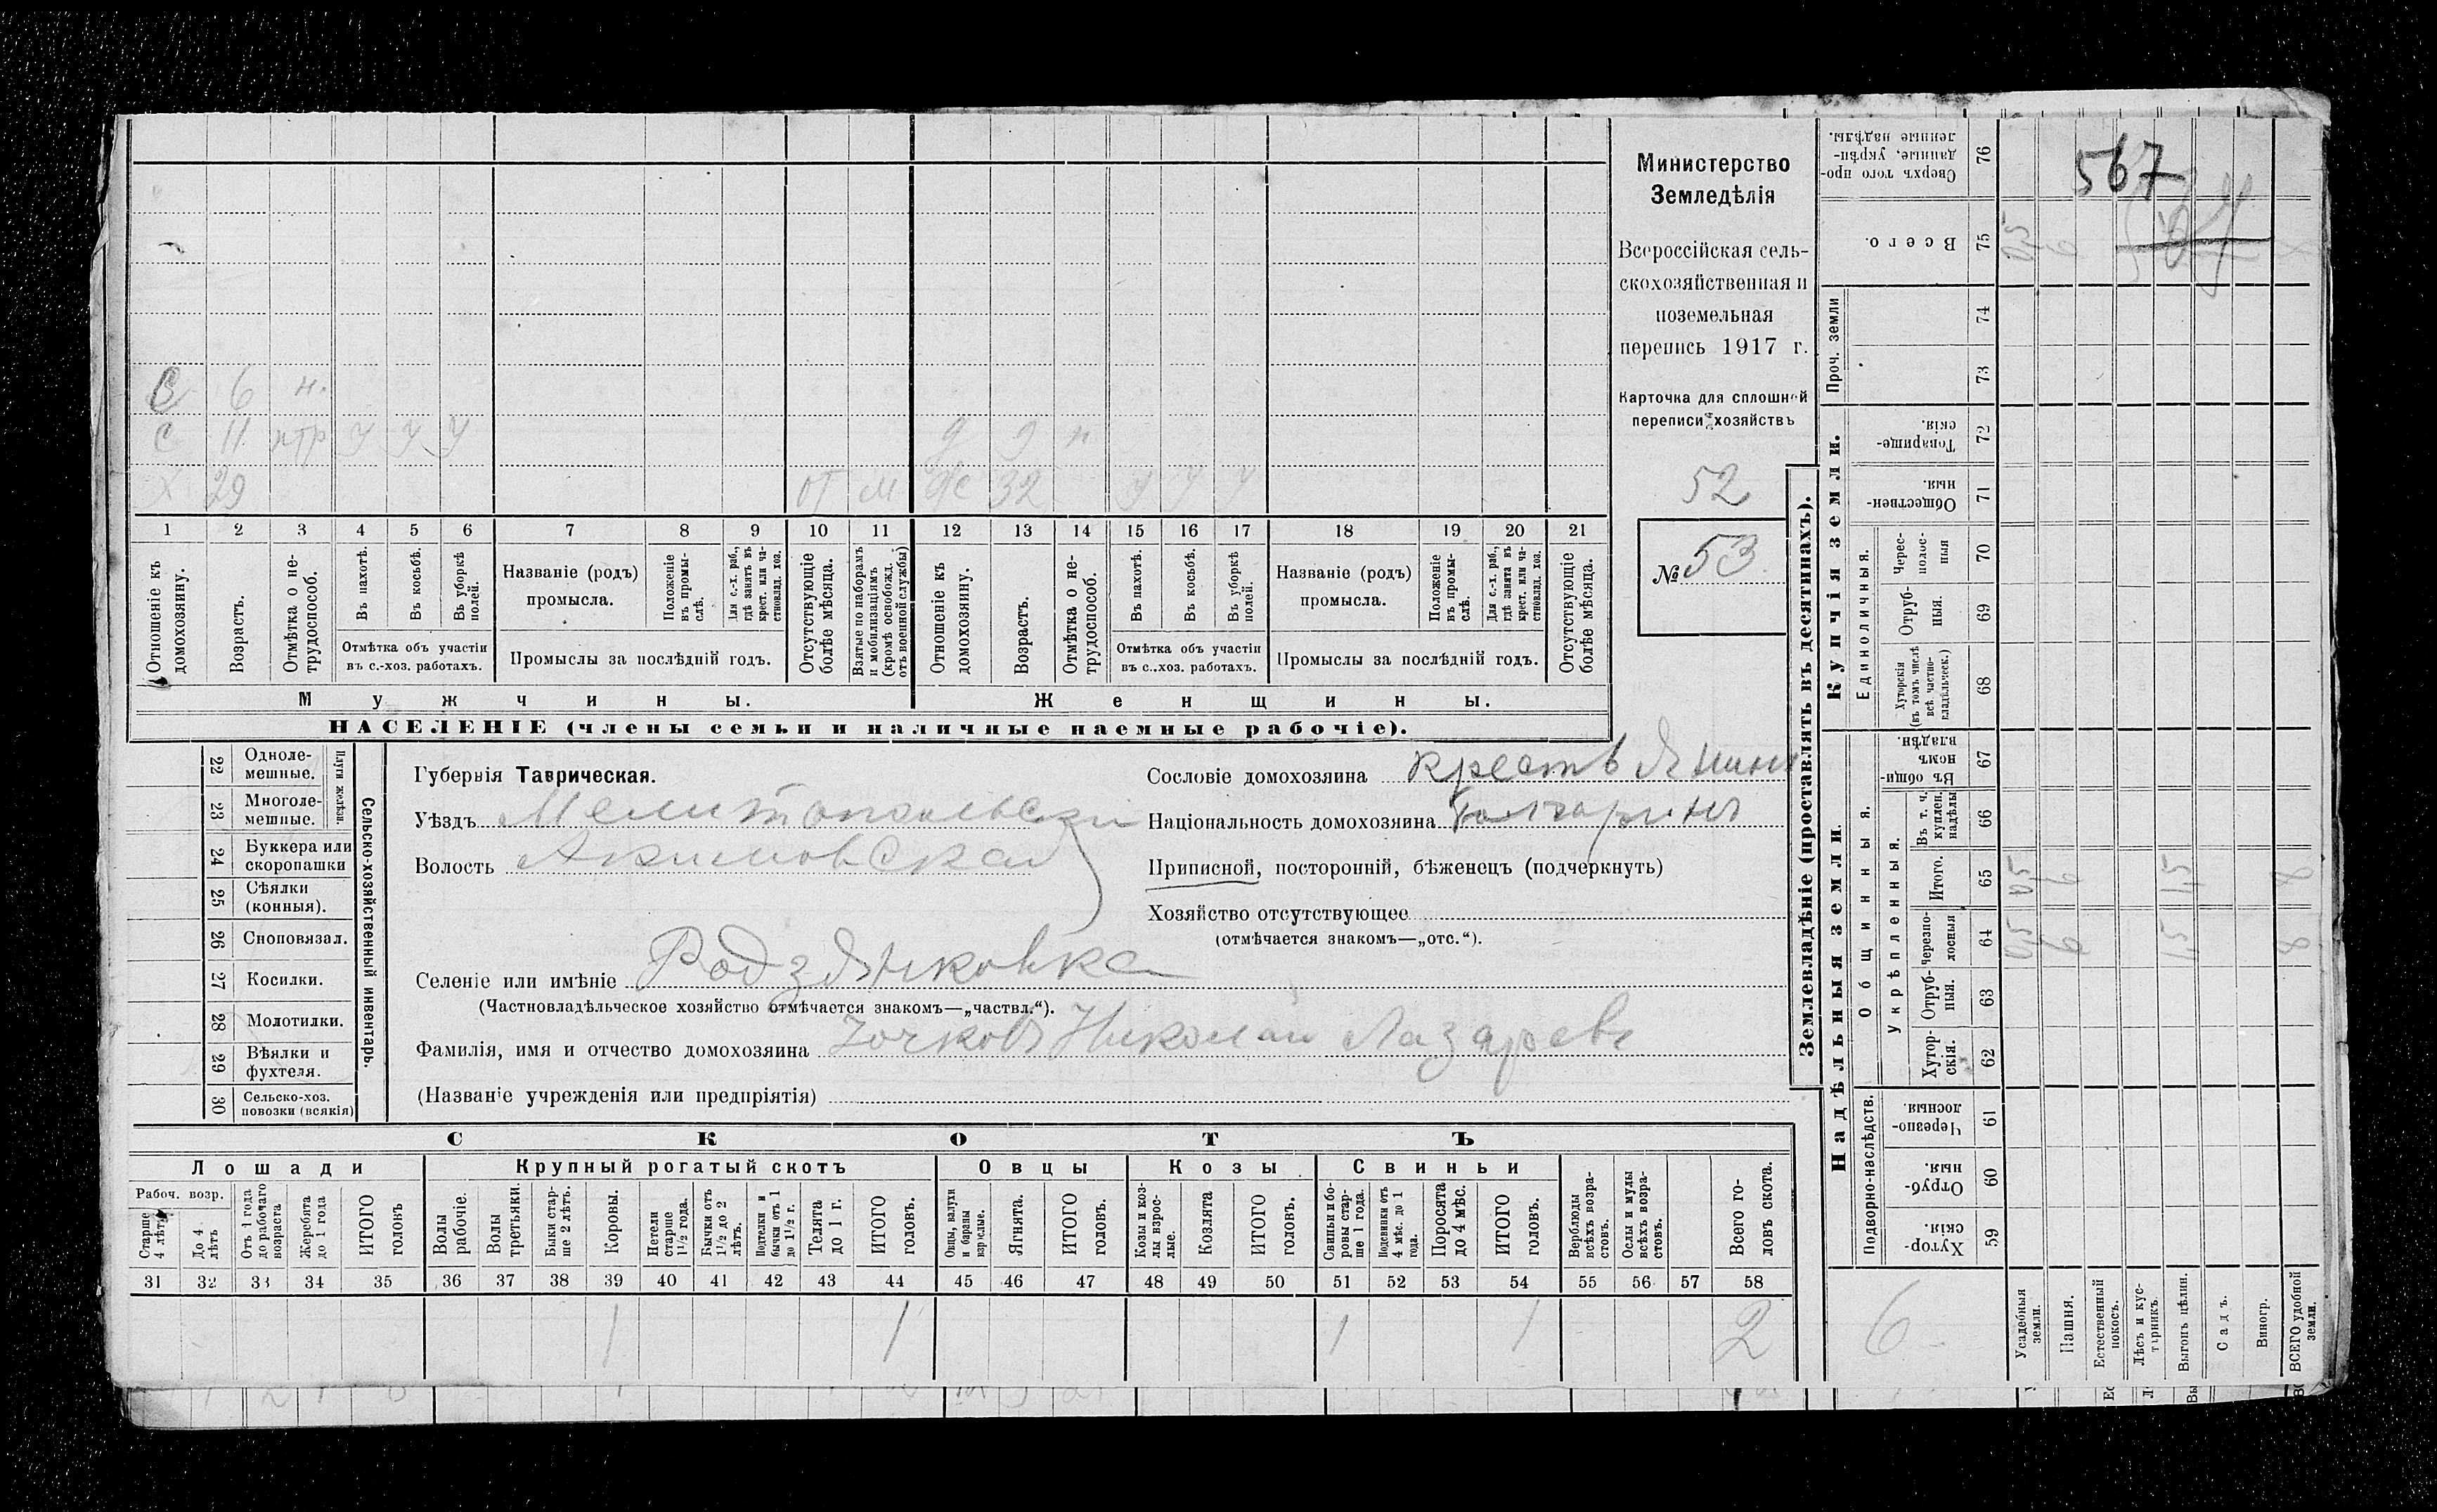 Министерство
Земледѣлія
Всероссійская сель-
скохозяйственная и
поземельная
перепись 1917 г.
Карточка для сплошной
переписи хозяйствъ
52
№ 53
567
С 6 н.
С 11 птр У У У
Х 29 ОТ М
д 9 н
Ж 32 У У У
1 2 3 4 5 6 7 8 9 10 11 12 13 14 15 16 17 18 19 20 21
Отношеніе къ домохозяину.
Возрастъ.
Отмѣтка о не-трудоспособ.
Въ пахотѣ.
Въ косьбѣ.
Въ уборкѣ полей.
Отмѣтка объ участіи
въ с.-хоз. работахъ.
Названіе (родъ)
промысла.
Положеніе въ промы-слѣ.
Для с.-х. раб., гдѣ занятъ въ крест. или ча-стновлад. хоз.
Промыслы за послѣдній годъ.
Отсутствующіе болѣе мѣсяца.
Взятые по наборамъ и мобилизаціямъ (кромѣ освобожд. отъ военной службы)
Отношеніе къ домохозяину.
Возрастъ.
Отмѣтка о не-трудоспособ.
Въ пахотѣ.
Въ косьбѣ.
Въ уборкѣ полей.
Отмѣтка объ участіи
въ с.-хоз. работахъ.
Названіе (родъ)
промысла.
Положеніе въ промы-слѣ.
Для с.-х. раб., гдѣ занята въ крест. или ча-стновлад. хоз.
Промыслы за послѣдній годъ.
Отсутствующіе болѣе мѣсяца.
Мужчины. Женщины.
НАСЕЛЕНІЕ (члены семьи и наличные наемные рабочіе).
22 Одноле-мешные.
23 Многоле-мешные.
Плуги желѣзн.
24 Буккера или скоропашки
25 Сѣялки (конныя).
26 Сноповязал.
27 Косилки.
28 Молотилки.
29 Вѣялки и фухтеля.
30 Сельско-хоз. повозки (всякія)
Сельско-хозяйственный инвентарь.
Губернія Таврическая.
Уѣздъ Мелитопольскій
Волость Акимовская
Селеніе или имѣніе Родзянковка
(Частновладѣльческое хозяйство отмѣчается знакомъ—„частвл.“).
Фамилія, имя и отчество домохозяина Точковъ Николай Лазаревъ
(Названіе учрежденія или предпріятія)
Сословіе домохозяина крестьянинъ
Національность домохозяина Болгаринъ
Приписной, посторонній, бѣженецъ (подчеркнуть)
Хозяйство отсутствующее
(отмѣчается знакомъ—„отс.“).
СКОТЪ
Лошади
Рабоч. возр.
Старше 4 лѣтъ
До 4 лѣтъ
Отъ 1 года до рабочаго возраста
Жеребята до 1 года
ИТОГО головъ
Крупный рогатый скотъ
Волы рабочіе.
Волы третьяки.
Быки стар-ше 2 лѣтъ.
Коровы.
Нетели старше 1½ года.
Бычки отъ 1½ до 2 лѣтъ.
Подтелки и бычки отъ 1 до 1½ г.
Телята до 1 г.
ИТОГО головъ.
Овцы
Овцы, валухи и бараны взрослые.
Ягнята.
ИТОГО головъ.
Козы
Козы и коз-лы взрос-лые.
Козлята
ИТОГО головъ.
Свиньи
Свиньи и бо-ровы стар-ше 1 года.
Подсвинки отъ 4 мѣс. до 1 года.
Поросята до 4 мѣс.
ИТОГО головъ.
Верблюды всѣхъ возра-стовъ.
Ослы и мулы всѣхъ возра-стовъ.
Всего го-ловъ скота.
31 32 33 34 35 36 37 38 39 40 41 42 43 44 45 46 47 48 49 50 51 52 53 54 55 56 57 58
1 1 1 1 2
Землевладѣніе (проставлять въ десятинахъ).
Купчія земли.
Надѣльныя земли.
Сверхъ того про-данные, укрѣп-ленные надѣлы. 76
Всего. 75
Проч. земли 74 73
Товарище-скія. 72
Обществен-ныя. 71
Единоличныя.
Черес-полос-ныя 70
Отруб-ныя. 69
Хуторскія (въ томъ числѣ всѣ частно-владѣльческ.) 68
Общинныя.
Въ общин-номъ владѣн. 67
Укрѣпленныя.
Въ т. ч. куплен. надѣлы 66
Итого. 65
Черезпо-лосныя 64
Отруб-ныя. 63
Хутор-скія. 62
Подворно-наслѣдств.
Черезпо-лосныя. 61
Отруб-ныя. 60
Хутор-скія. 59
6
Усадебныя земли.
Пашня.
Естественный покосъ.
Лѣсъ и кус-тарникъ.
Выгонъ цѣлин.
Садъ.
Виногр.
ВСЕГО удобной земли.
05 6
05 6 15 8
05 6 15 8